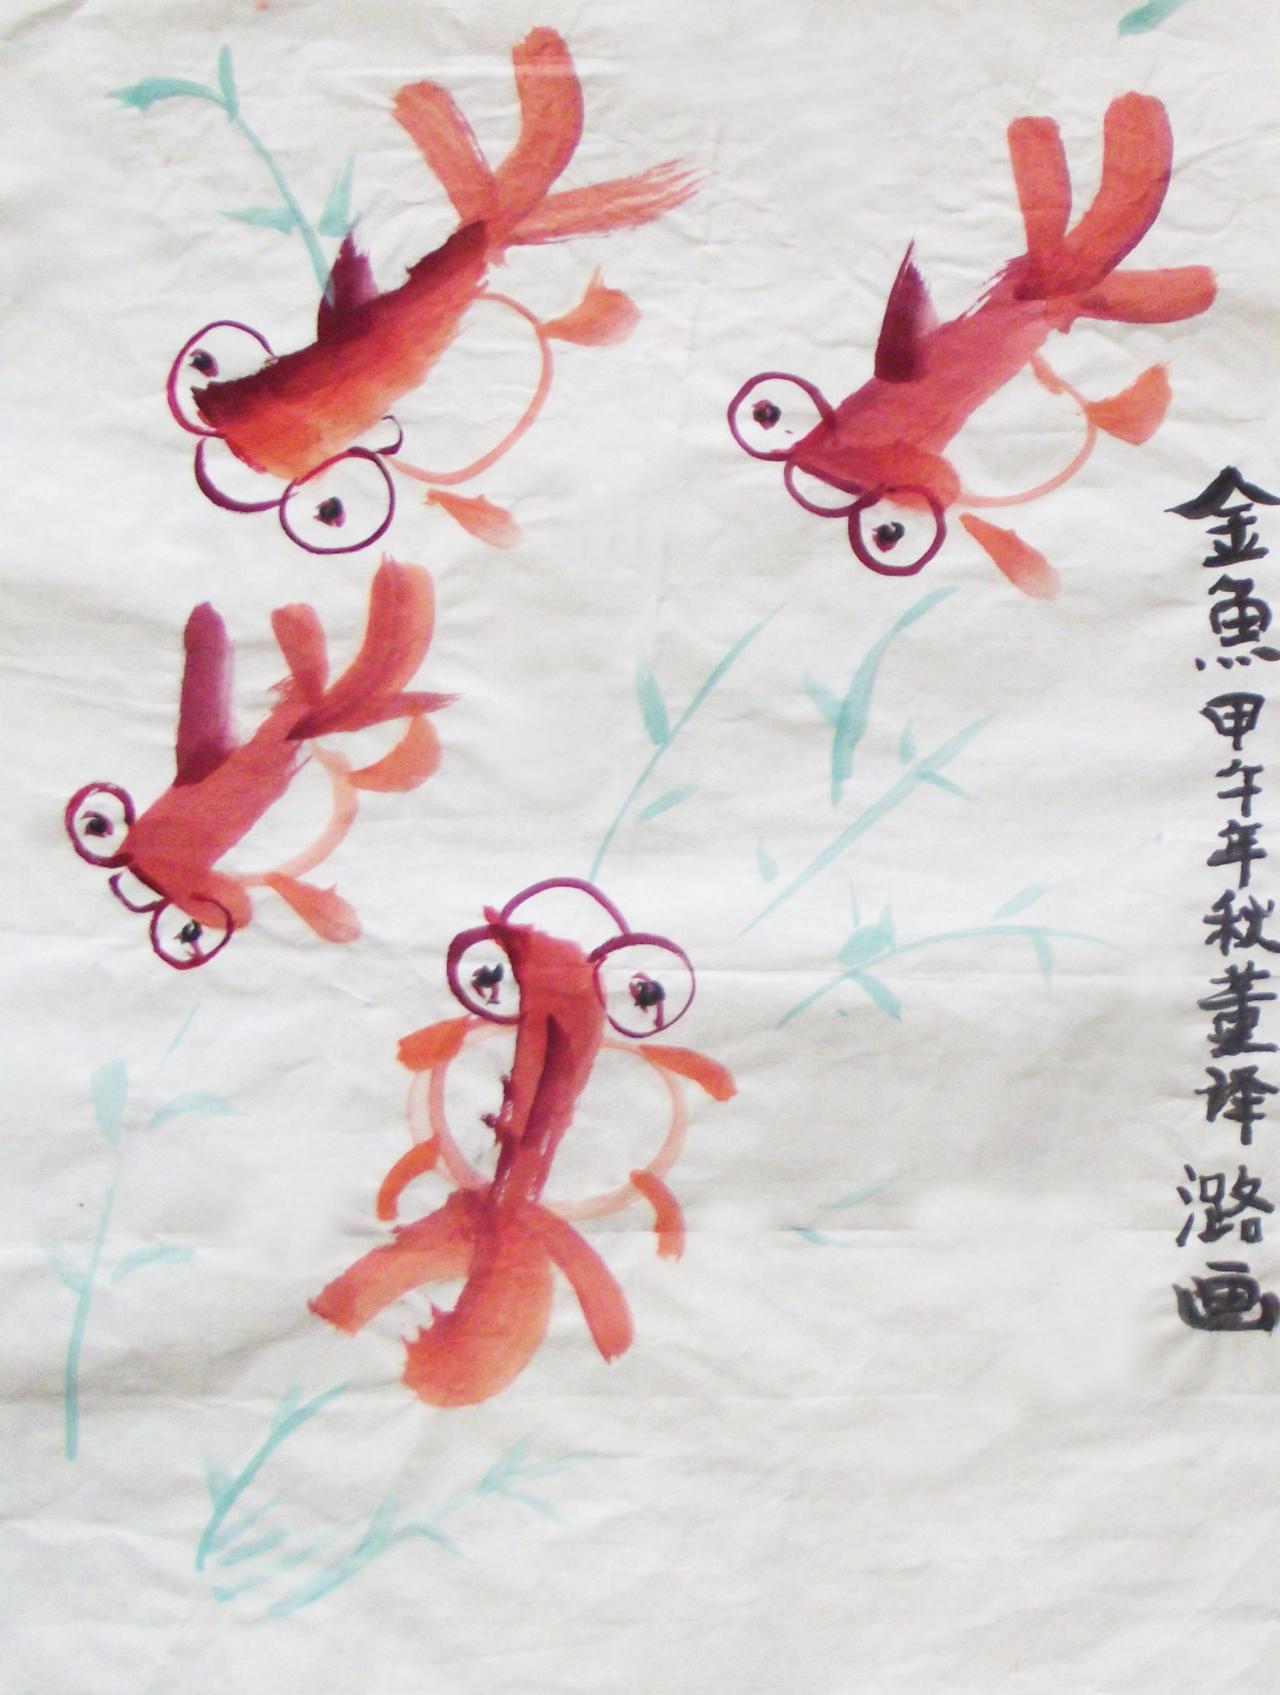 金魚甲午年秋董译潞画